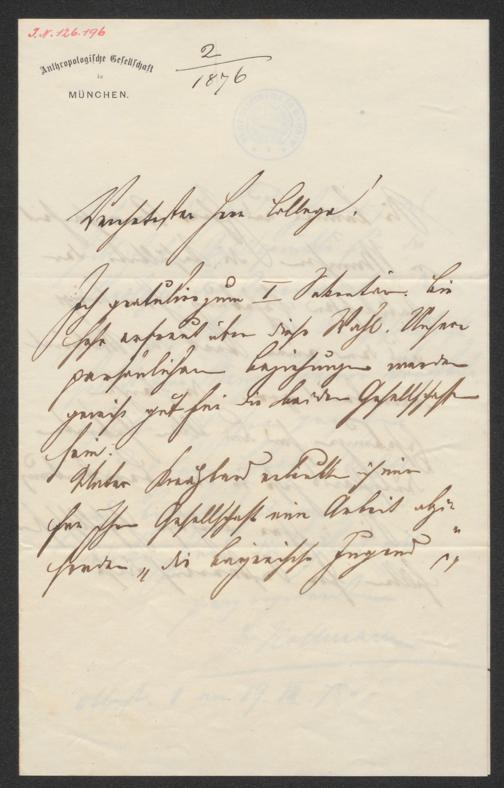 J.N. 126.196
Anthropologische Gesellschaft
in
MÜNCHEN.
2
1876
Verehrtester Herr College!
Ich gratulire zum I Sekretär. Bin
sehr erfreut über diese Wahl. Unsere
persönlichen Beziehungen werden
gewiß gut für die beiden Gesellschaften
sein.
Unter Kreuzband erlaubte ich mir
für Ihre Gesellschaft eine Arbeit abzu
senden „die bayerische Jugend"